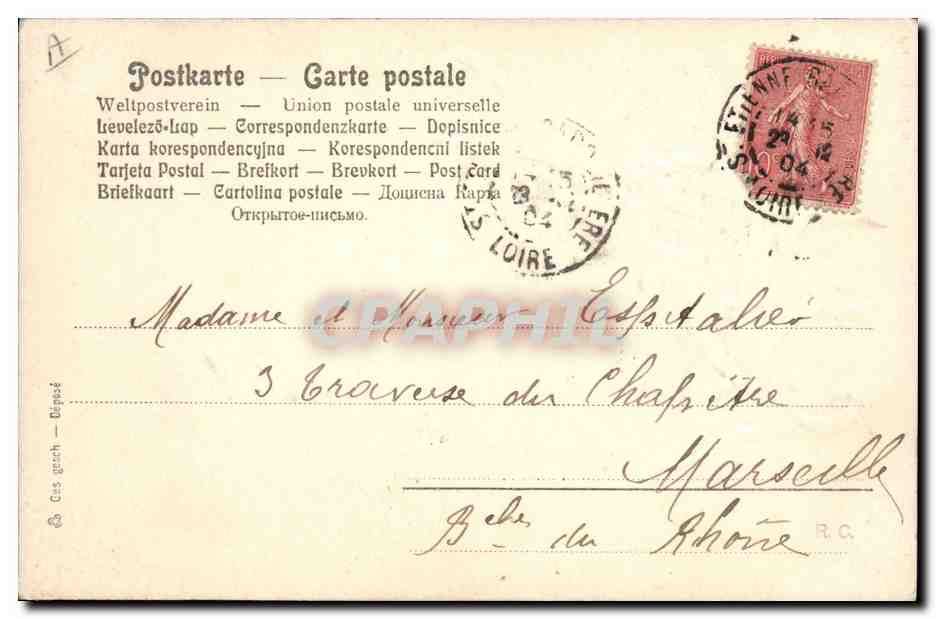 A
Postkarte — Carte postale
Weltpostverein — Union postale universelle
Levelező-Lap — Correspondenzkarte — Dopisnice
Karta korespondencyjna — Korespondencni listek
Tarjeta Postal — Brefkort — Brevkort — Post card
Briefkaart — Cartolina postale — Доцисна Карта
Открытое-письмо.
ST ETIENNE
LOIRE
04
LOIRE
04
CPAPHIL
Madame et Monsieur Espitalié
3 Traverse du Chapitre
Marseille
Bches du Rhône
R. G.
Ges gesch — Déposé